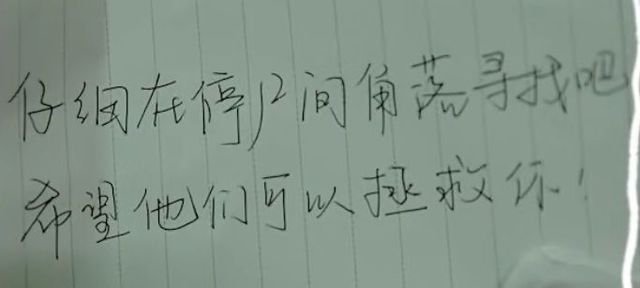 仔细在停尸间角落寻找吧
希望他们可以拯救你!